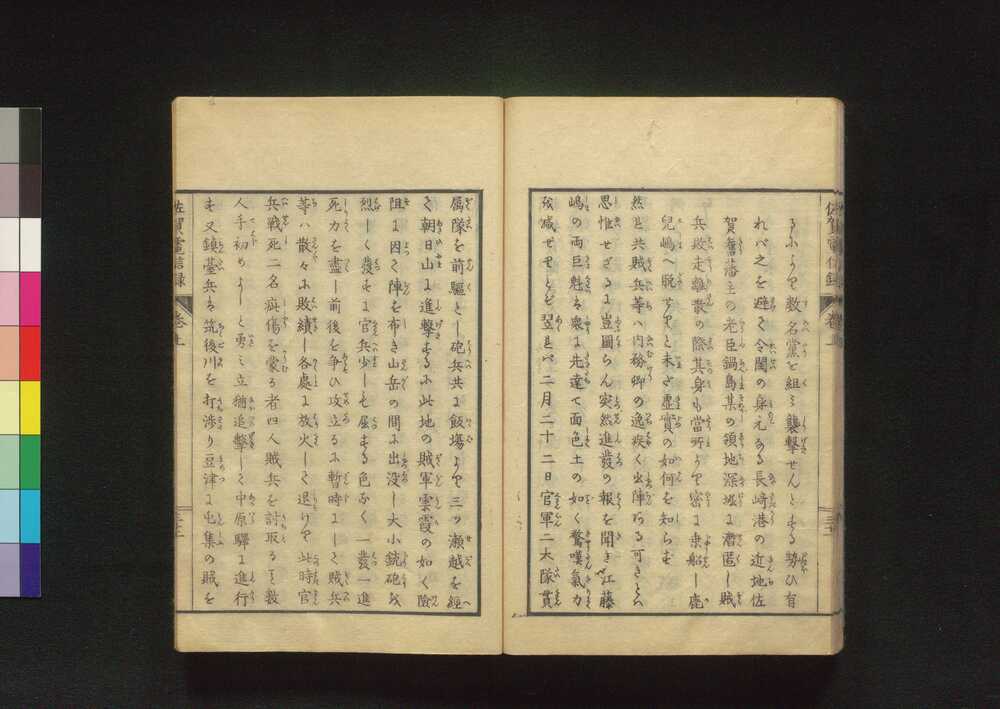 るふより数名黨を組ミ襲撃せんとする勢ひ有
れバ之を避て令閨の身元なる長崎港の近地佐
賀舊藩主の老臣鍋島某の領地深堀に潜匿し賊
兵敗走離散の際其身も當所より密に乗船し鹿
児嶋へ脱せりと未ざ虚實の如何を知らず
然と共賊兵等ハ内務卿の逸疾く出陣ある可きとハ
思惟せざるに豈圖らん突然進發の報を聞き江藤
嶋の両巨魁も衆に先達て面色土の如く驚嘆氣力
減ぜせ 翌レバ二月二十二日官軍二大隊貫
属隊を前驅とし砲兵共に飯塲より三ツ瀬越を經
て朝日山に進撃するふ此地の賊軍雲霞の如く險
阻に因て陣を布き山岳の間ふ出没し大小銃砲
烈しく發すに官兵少しも屈する色なく一發一進
死力を盡し前後を争ひ攻立るふ暫時にして賊兵
等ハ散々ふ敗績し各處に放火して退けり此時官
兵戦死二名疵傷を蒙る者四人賊兵を討取る叓数
人手初めよしと勇ミ立猶追撃して中原驛に進行
す又鎮臺兵ハ筑後川を打渉り豆津に屯集の賊を
佐賀電信録
巻上
佐賀電信録
巻上